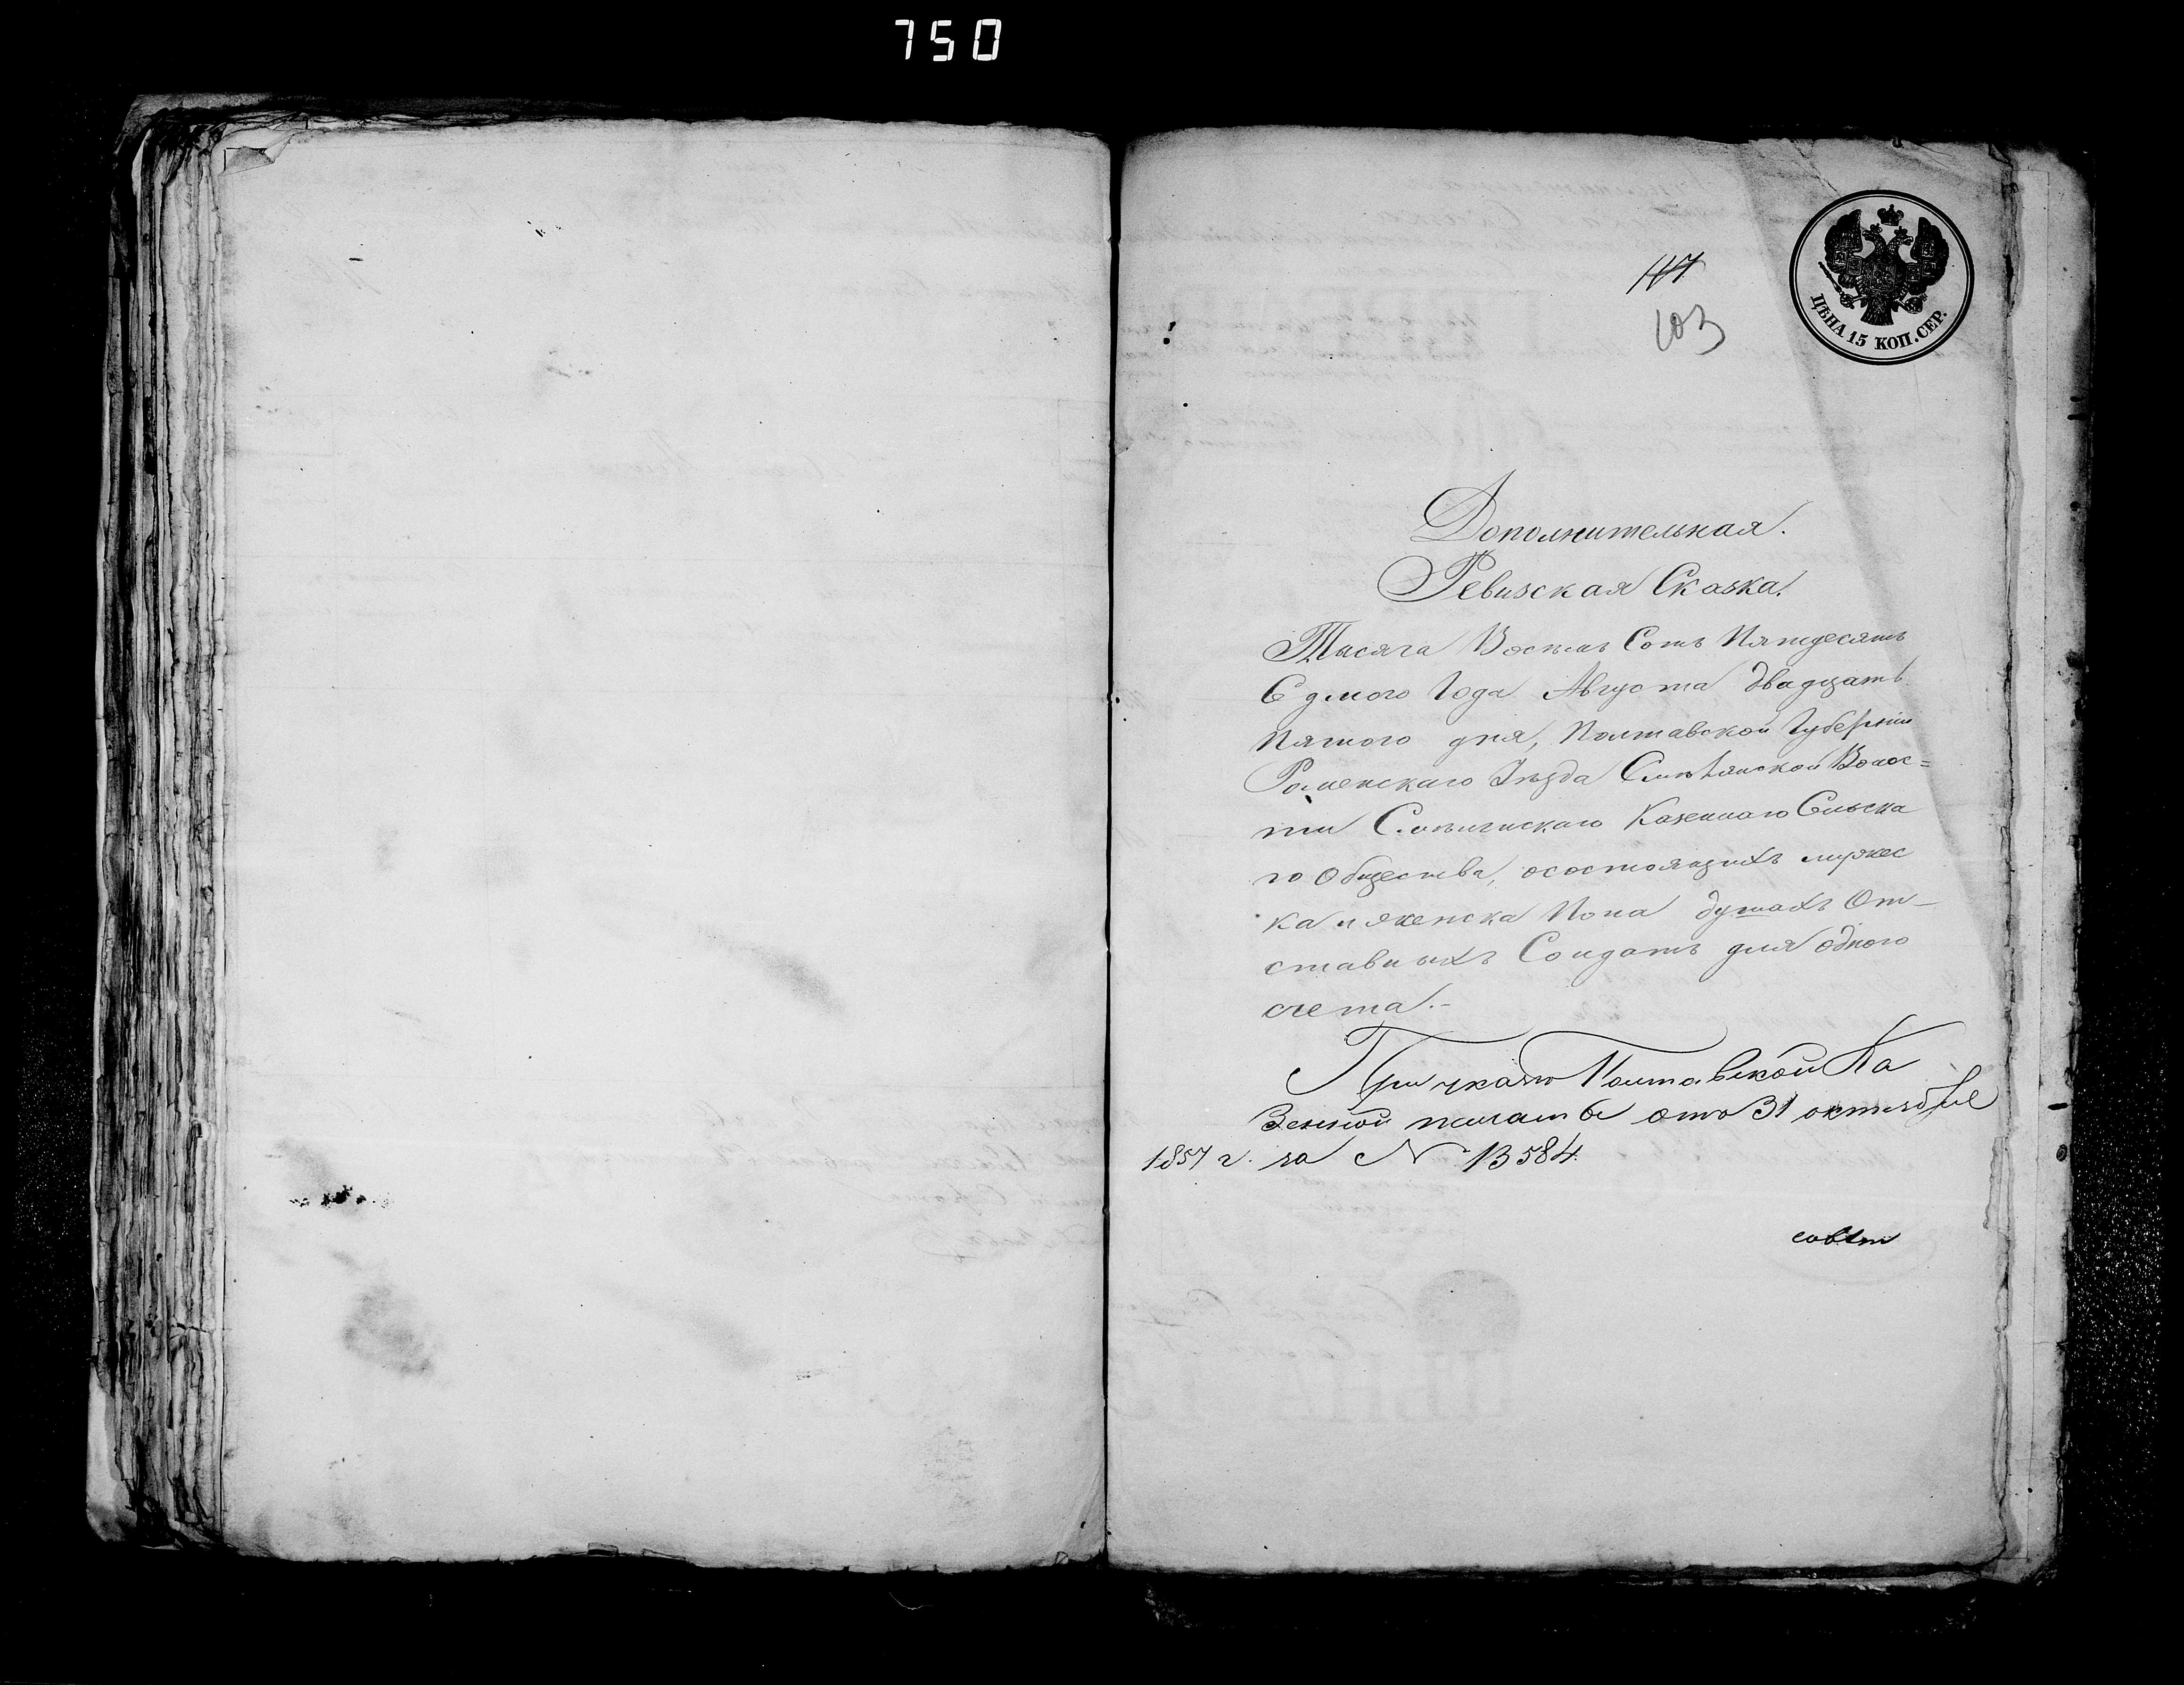 750
117
103
ЦѢНА 15 КОП. СЕР.
Дополнительная.
Ревизская Сказка.
Тысяча Восемь Сотъ Пятдесятъ
Седмого Года Августа двадцать
Пятого дня, Полтавской Губерніи
Роменскаго Уѣзда Смѣлянской Волос=
ти Казенного Сельска
го Общества, осостоящихъ мужес
ка и женска Пола душахъ От-
ставныхъ Солдатъ для одного
счета.-
При указѣ Полтавской Ка
Зенной палаты отъ 31 октября
1857 г. за № 13584